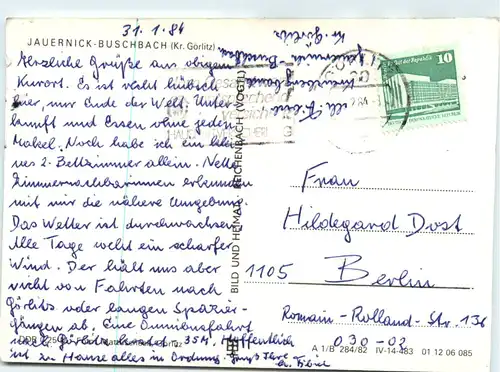 31.1.84
JAUERNICK-BUSCHBACH (Kr. Görlitz)
Herzliche Grüße aus obigem
Kurort. Es ist recht hübsch
hier, nur Ende der Welt. Unter
kunft und Essen ohne jeden
Makel. Noch habe ich ein klei
nes 2-Bettzimmer allein. Nette
Zimmernachbarinnen erkunden
mit mir die nähere Umgebung.
Das Wetter ist durchwachsen.
Alle Tage weht ein scharfer
Wind. Der hält uns aber
nicht von Fahrten nach
Görlitz oder langen Spazier-
gängen ab. Eine Omnibusfahrt
nach Görlitz kostet 35 M. Hoffentlich
ist zu Hause alles in Ordnung.
Kr. Görlitz
BILD UND HEIMAT REICHENBACH (VOGTL)
10
Frau
Hildegard Dost
1105 Berlin
Romain-Rolland-Str. 136
030-02
A 1/B 284/82 IV-14-483 01 12 06 085